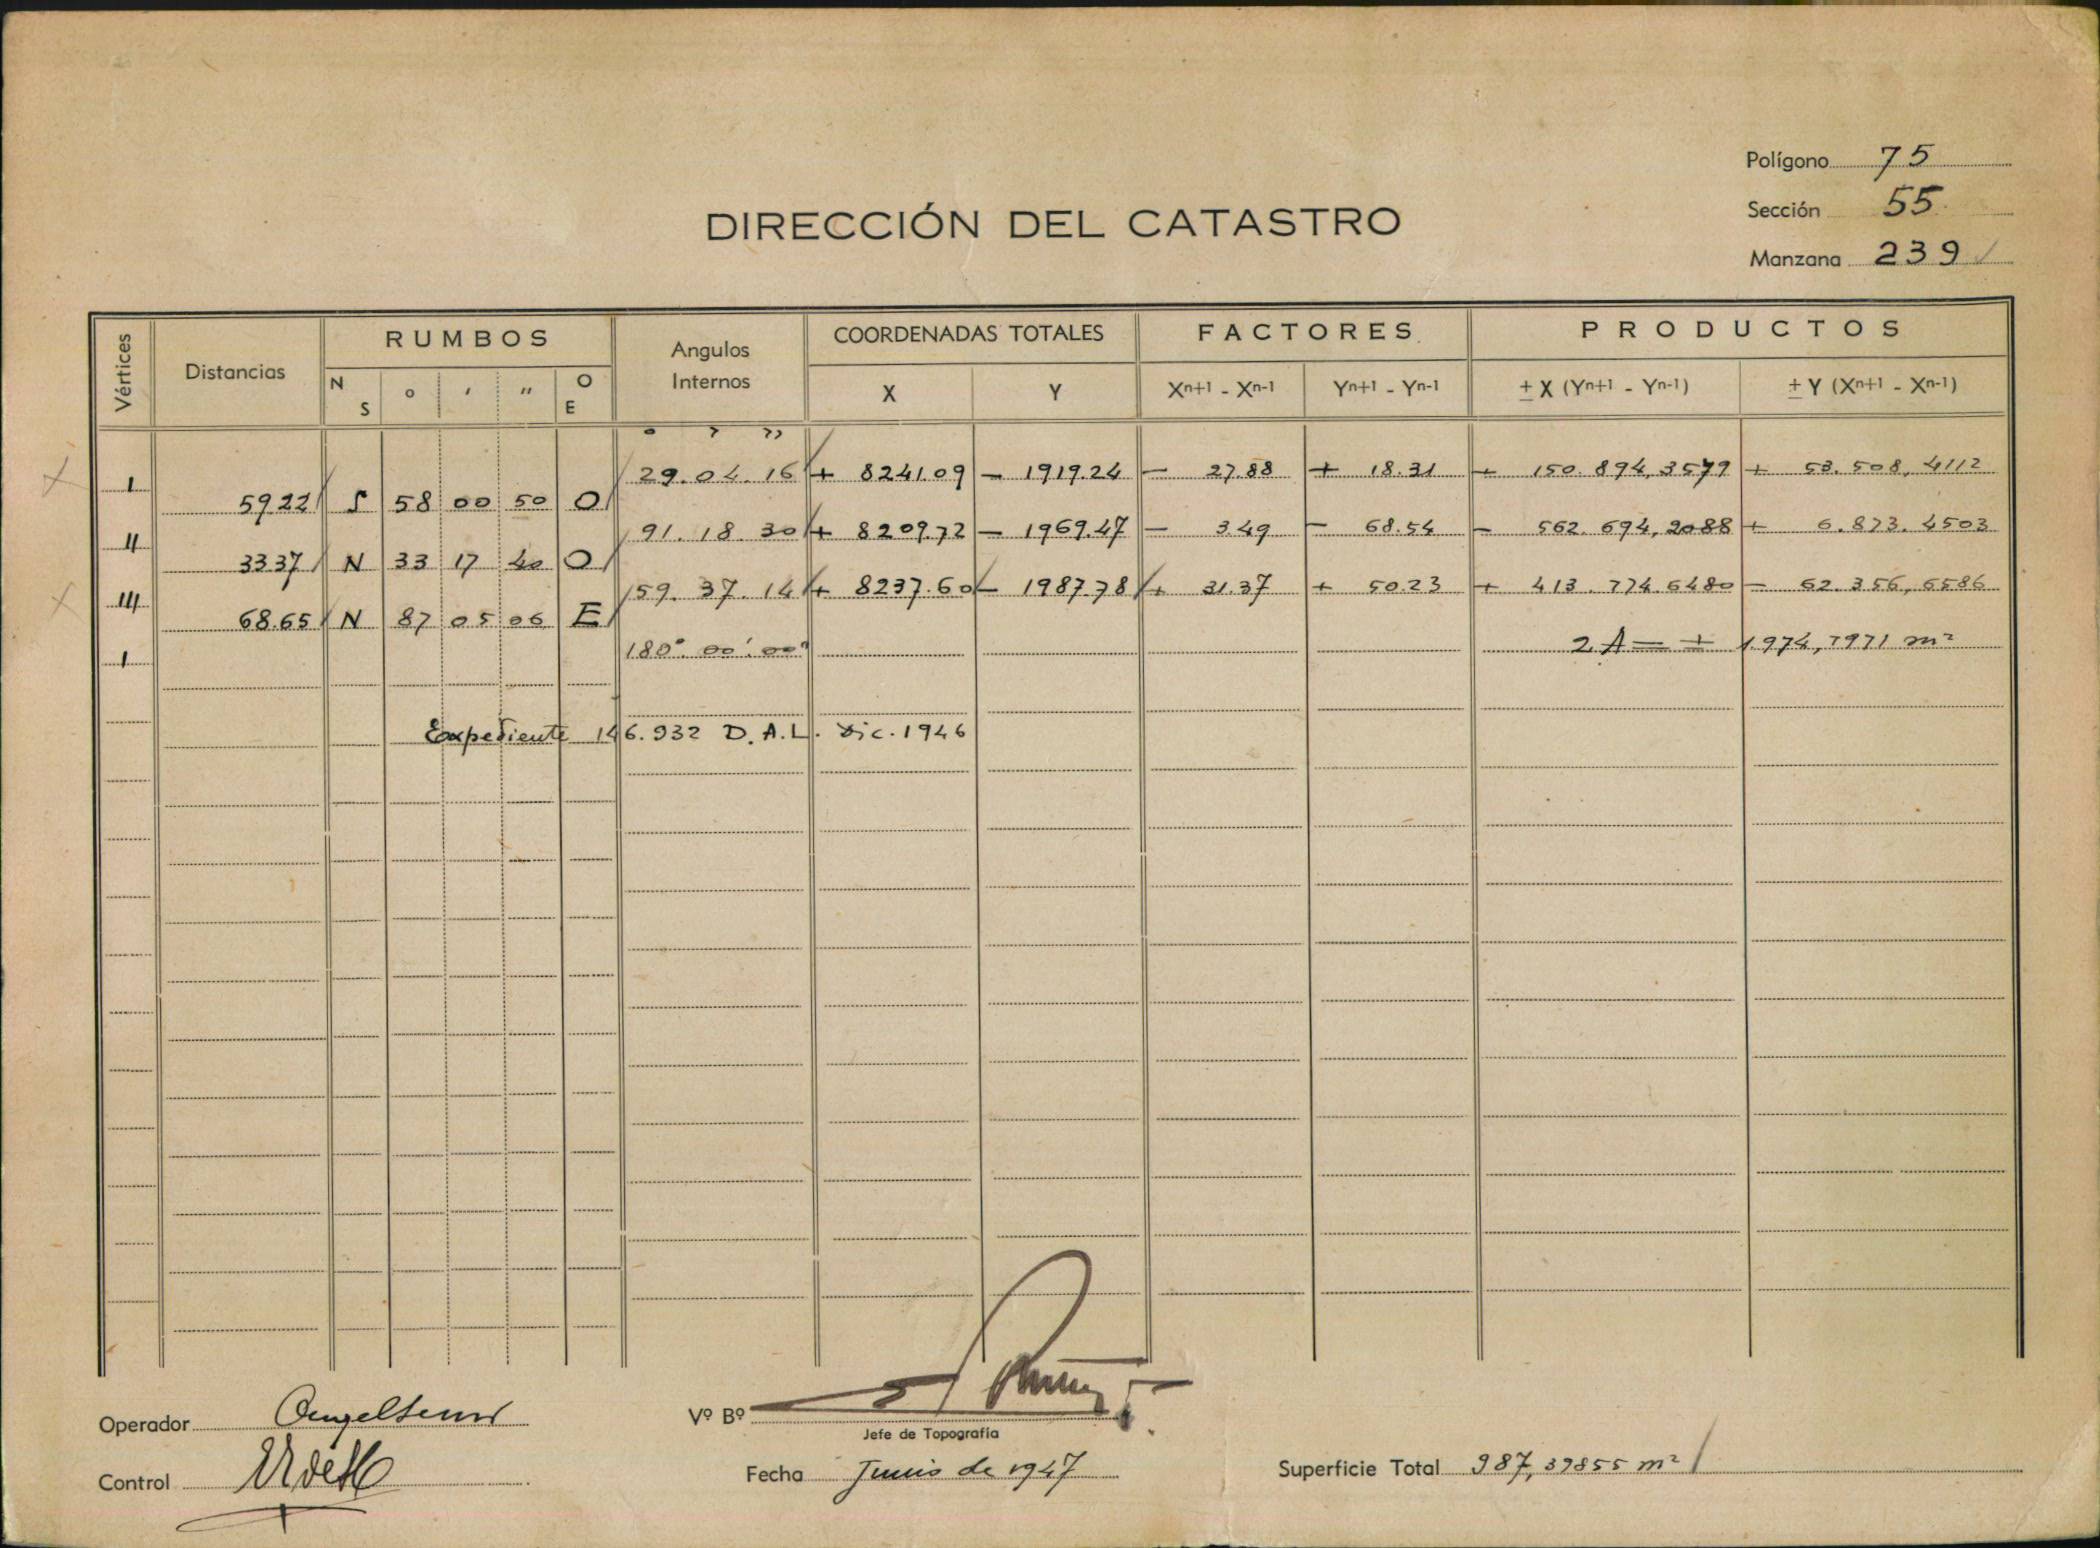 Polígono 75
Sección 55
Manzana 239
DIRECCIÓN DEL CATASTRO
Vértices Distancias RUMBOS Angulos Internos COORDENADAS TOTALES FACTORES PRODUCTOS
N S ° ' " O E X Y Xn+1 - Xn-1 Yn+1 - Yn-1 ± X (Yn+1 - Yn-1) ± Y (Xn+1 - Xn-1)
° ' "
I 29. 04. 16 + 8241.09 - 1919.24 - 27.88 + 18.31 + 150.894,3579 + 53.508,4112
59.22 S 58 00 50 O
II 91. 18. 30 + 8209.72 - 1969.47 - 3.49 - 68.54 - 562.694,2088 + 6.873.4503
33.37 N 33 17 40 O
III 59. 37. 14 + 8237.60 - 1987.78 + 31.37 + 50.23 + 413.774.6480 - 62.356,6586
68.65 N 87 05 06 E
I 180°. 00'. 00" 2 A = + 1.974,7971 m²
Expediente 146.932 D.A.L. Dic. 1946
Operador
Vº Bº
Jefe de Topografía
Control
Fecha Junio de 1947
Superficie Total 987,39855 m²